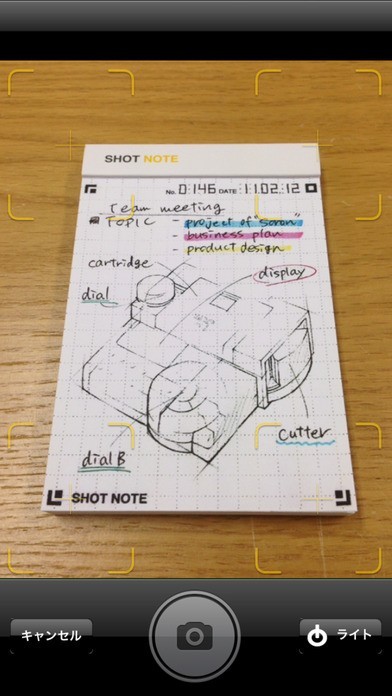 SHOT NOTE
No. 0:146 DATE 11.02.12
Team meeting
TOPIC - project of "soron"
- business plan
- product design
cartridge
display
dial
cutter
dial B
SHOT NOTE
キャンセル
ライト